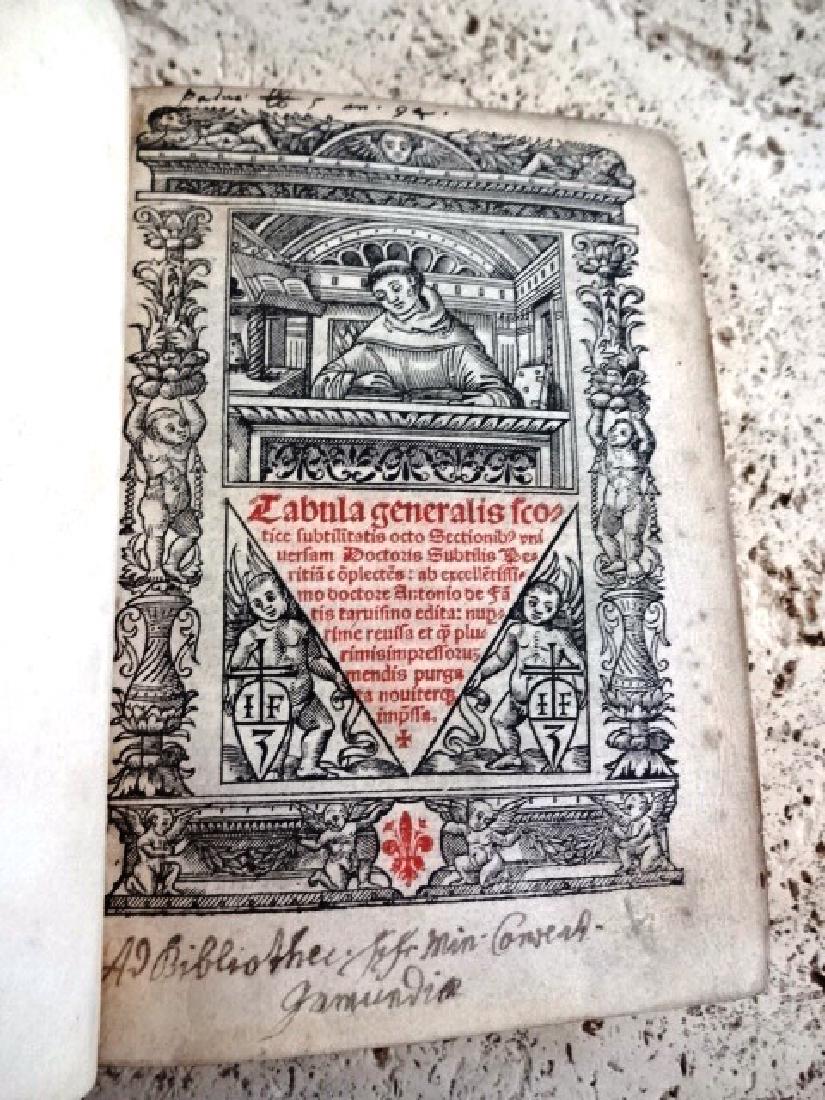 an: 94.
Tabula generalis sco-
tice subtilitatis octo Sectionibꝰ vni
uersam Doctoris Subtilis Pe-
ritiã cõplectẽs: ab excellẽtissi-
mo doctore Antonio de Fã
tis taruisino edita: nuꝑ-
rime reuisa et ꝙ̃ plu-
rimis impressoruꝫ
mendis purga
ta nouiterqꝫ
imp̃ssa.
I F
3
I F
3
Ad Bibliothec. Min. Convent.
Gamundiæ